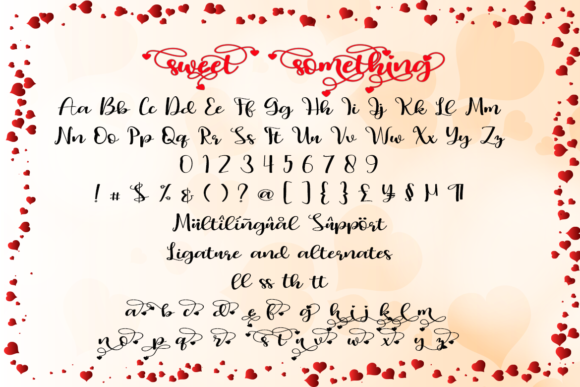 sweet something
Aa Bb Cc Dd Ee Ff Gg Hh Ii Jj Kk Ll Mm
Nn Oo Pp Qq Rr Ss Tt Uu Vv Ww Xx Yy Zz
0 1 2 3 4 5 6 7 8 9
! # $ % & ( ) ? @ [ ] { } £ ¥ § µ ¶
Mültîlíñgûål Sûppört
Ligature and alternates
ll ss th tt
a b c d e f g h i j k l m
n o p q r s t u v w x y z